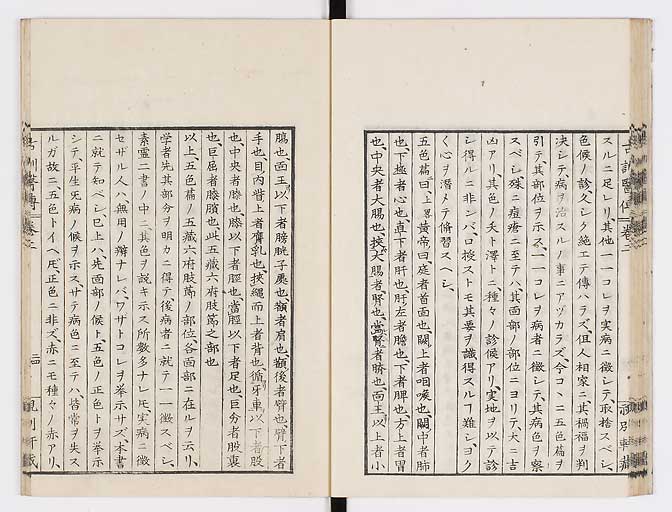 スルニ足レリ、其他一一コレヲ実病ニ徴シテ取捨スベシ、
色候ノ診、久シク絶エテ傳ハラズ、但人相家ニ、其禍福ヲ判
決シテ、病ヲ治スルノ事ニアヅカラズ、今コヽニ五色篇ヲ
引テ其部位ヲ示ス、一一コレヲ病者ニ徴シテ、其病色ヲ察
スベシ、殊ニ痘瘡ニ至テハ、其面部ノ部位ニヨリテ、大ニ吉
凶アリ、其色ノ夭ト澤トニ種々ノ診候アリ、実地ヲ以テ診
シ得ルニ非ンバ、口授ストモ其要ヲ識得スルヿ難シ、ヨク
く心ヲ潜メテ脩習スベシ、
五色篇曰、上畧黄帝曰、庭者首面也、闕上者咽喉也、闕中者肺
也、下極者心也、直下者肝也、肝左者膽也、下者脾也、方上者胃
也、中央者大腸也、挾大腸者腎也、當腎者臍也、面王以上者小
腸也、面王以下者膀胱子處也、顴者肩也、顴後者臂也、臂下者
手也、目内眥上者膺乳也、挾繩而上者背也、循牙車以下者股
也、中央者膝也、膝以下者脛也、當脛以下者足也、巨分者股裏
也、巨屈者膝臏也、此五藏六府肢莭之部也
以上、五色篇ノ五藏六府肢莭ノ部位、各面部ニ在ルヲ云リ、
学者先其部分ヲ明カニ得テ後、病者ニ就テ一一徴スベシ、
素靈二書ノ中ニ、其色ヲ説キ示ス所數多ナレ𪜈、実病ニ徴
セザル人ハ、無用ノ辯ナレバ、ワザトコレヲ挙示サズ、本書
ニ就テ知ベシ、已上ハ先面部ノ候ト、五色ノ正色トヲ挙示
シテ、平生旡病ノ候ヲ示スサテ病色ニ至テハ、皆常ヲ失ス
ルガ故ニ、五色トイヘ𪜈、正色ニ非ズ、赤ニモ種々ノ赤アリ、